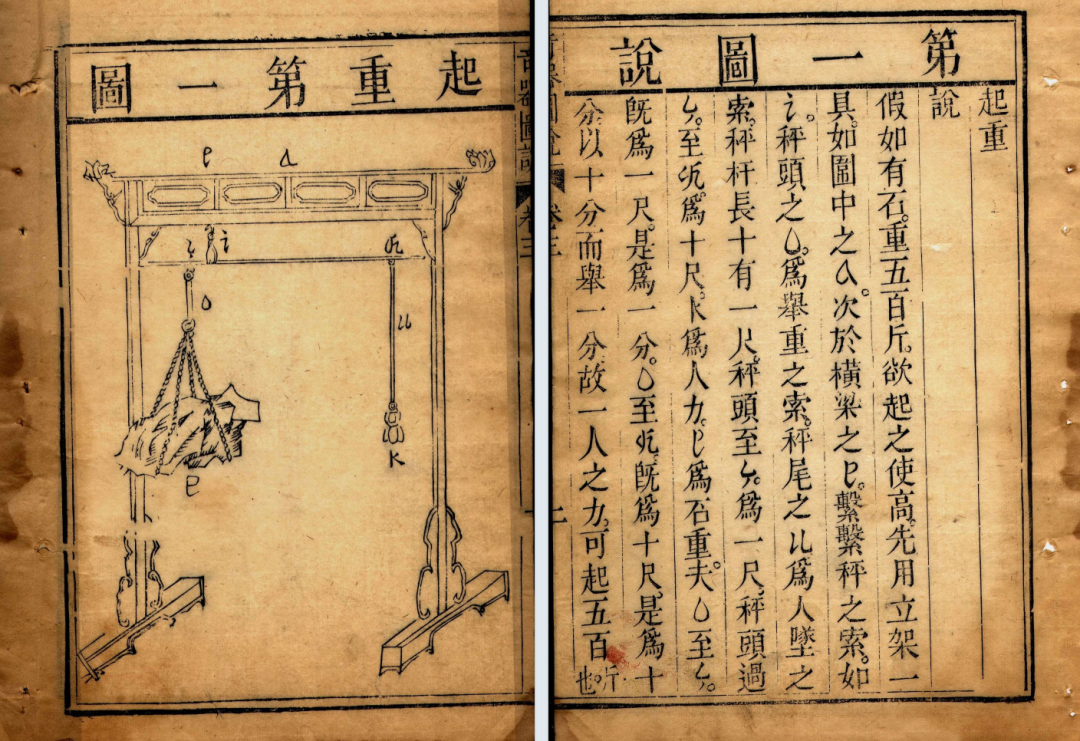 第一圖說
起重
說
假如有石。重五百斤。欲起之使高。先用立架一
具。如圖中之a。次於橫梁之 繫繫秤之索。如
i。秤頭之o。爲舉重之索。秤尾之u爲人墜之
索。秤杆長十有一尺。秤頭至 爲一尺。秤頭過
至 爲十尺。K爲人力。 爲石重。夫o至
既爲一尺。是爲一分。o至 既爲十尺。是爲十
分以十分而舉一分。故一人之力。可起五百
斤也。
奇器圖說 卷三
起重第一圖
a
i
o
u
K